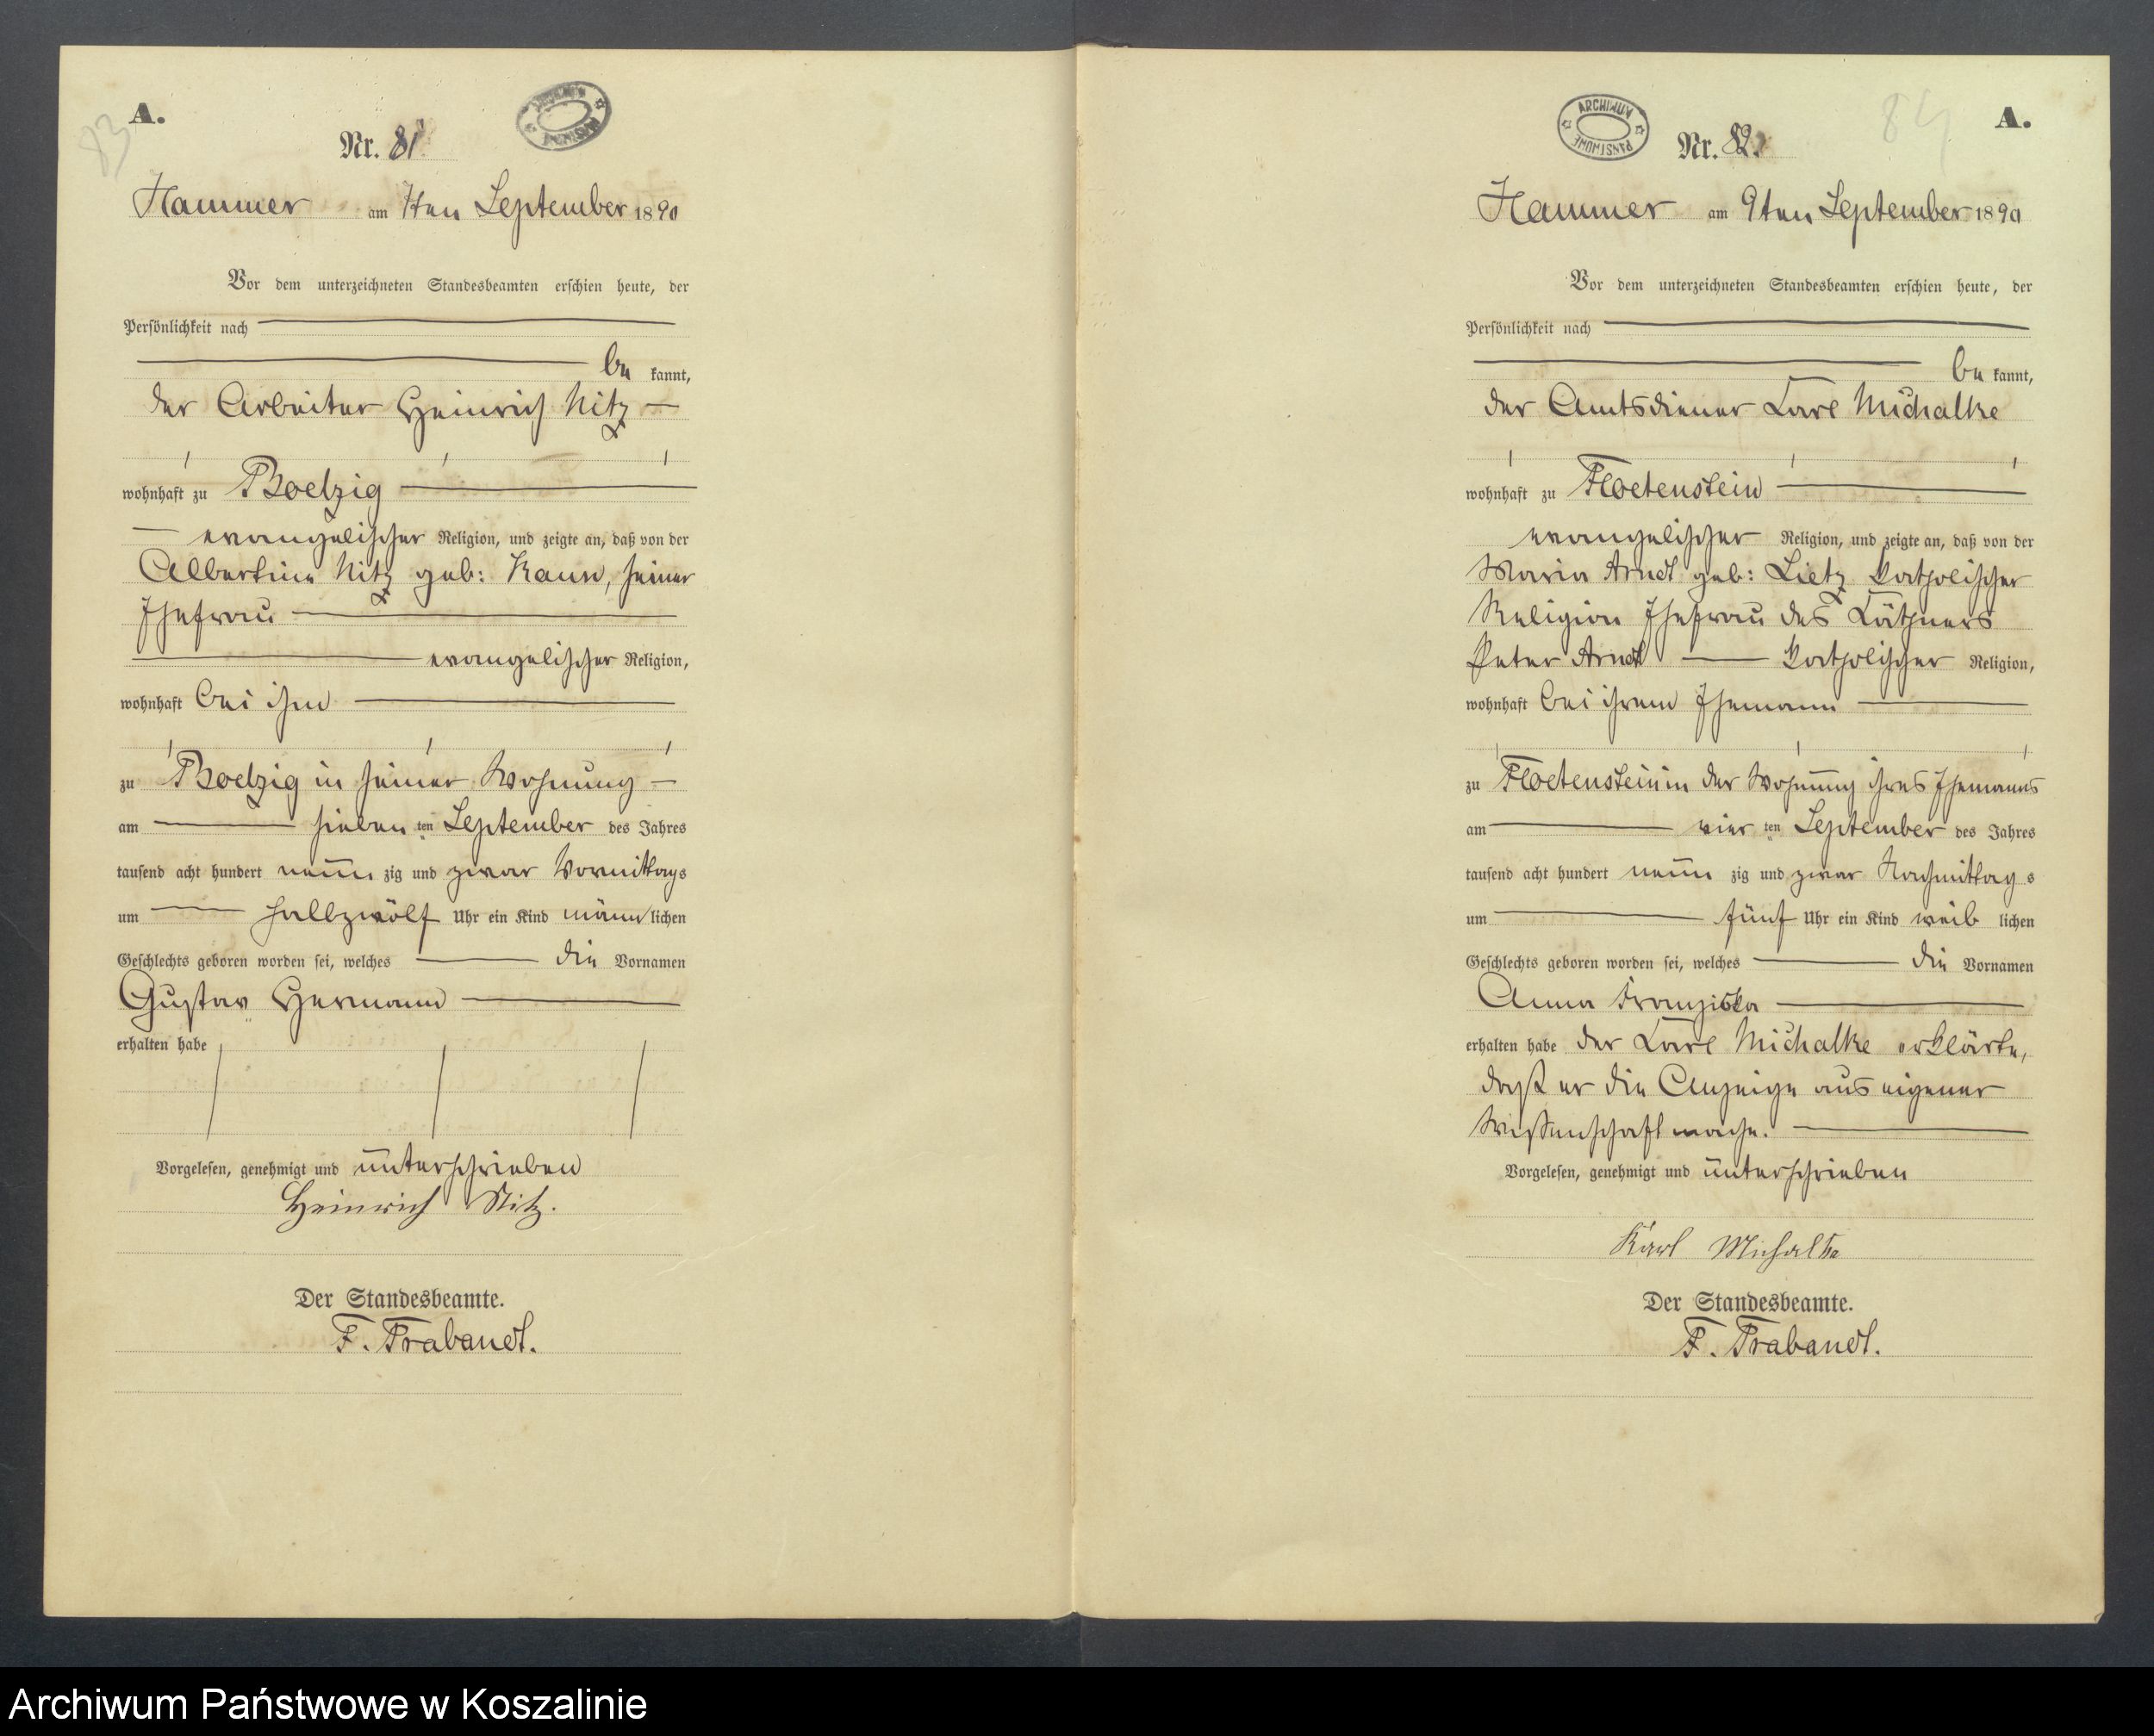 83
A.
ARCHIWUM PAŃSTWOWE
Nr. 81.
Hammer am 7ten September 1890
Vor dem unterzeichneten Standesbeamten erschien heute, der
Persönlichkeit nach
be kannt,
der Arbeiter Heinrich Nitz
wohnhaft zu Boelzig
evangelischer Religion, und zeigte an, daß von der
Albertine Nitz geb: Raun, seiner
Ehefrau
evangelischer Religion,
wohnhaft bei ihm
zu Boelzig in seiner Wohnung
am sieben ten September des Jahres
tausend acht hundert neun zig und zwar Vormittags
um halbzwölf Uhr ein Kind männ lichen
Geschlechts geboren worden sei, welches die Vornamen
Gustav Hermann
erhalten habe
Vorgelesen, genehmigt und unterschrieben
Heinrich Nitz.
Der Standesbeamte.
F. Trabandt.
84
A.
ARCHIWUM PAŃSTWOWE
Nr. 82.
Hammer am 9ten September 1890
Vor dem unterzeichneten Standesbeamten erschien heute, der
Persönlichkeit nach
be kannt,
der Amtsdiener Carl Michalke
wohnhaft zu Floetenstein
evangelischer Religion, und zeigte an, daß von der
Maria Arndt geb: Lietz katholischer
Religion Ehefrau des Käthners
Peter Arndt katholischer Religion,
wohnhaft bei ihrem Ehemann
zu Floetenstein in der Wohnung ihres Ehemanns
am vier ten September des Jahres
tausend acht hundert neun zig und zwar Nachmittag s
um fünf Uhr ein Kind weib lichen
Geschlechts geboren worden sei, welches die Vornamen
Anna Franziska
erhalten habe der Carl Michalke erklärte,
daß er die Anzeige aus eigener
Wissenschaft mache.
Vorgelesen, genehmigt und unterschrieben
Karl Michalke
Der Standesbeamte.
F. Trabandt.
Archiwum Państwowe w Koszalinie